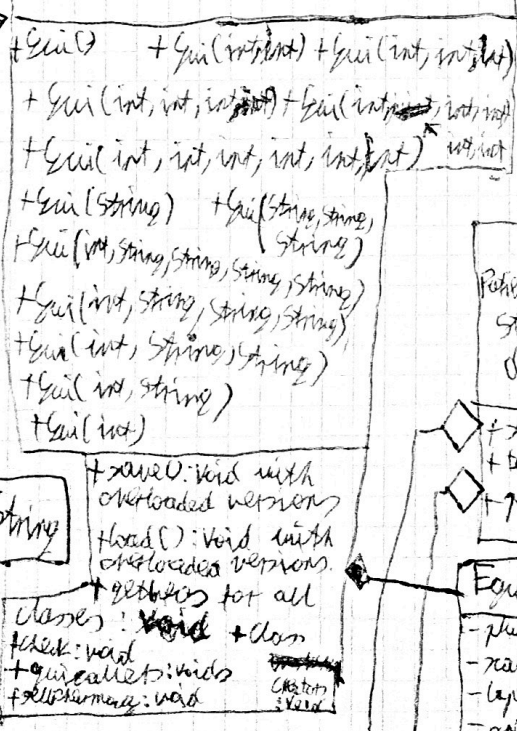 +Gui() +Gui(int,int) +Gui(int,int,int)
+Gui(int,int,int,int) +Gui(int, int,int,
int,int
+Gui(int,int,int,int,int,int)
+Gui(String) +Gui(String,String,
String)
+Gui(int,String,String,String,String)
+Gui(int,String,String,String)
+Gui(int,String,String)
+Gui(int,String)
+Gui(int)
+save():void with
overloaded versions
+load():void with
overloaded versions.
+getters for all
classes:void +class
+check:void
:void
:void
:void
tring
Equ